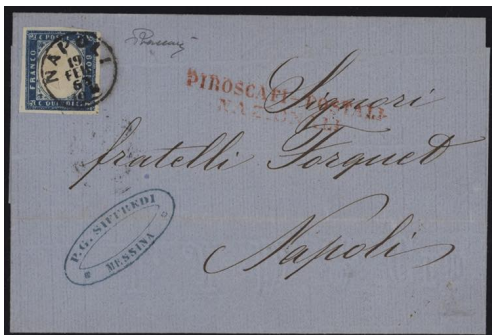 NAPOLI
19
FEB
FRANCO
PIROSCAFI POSTALI
NAZIONALI
Signori
fratelli Forquet
Napoli
P. G. SIFFREDI
MESSINA